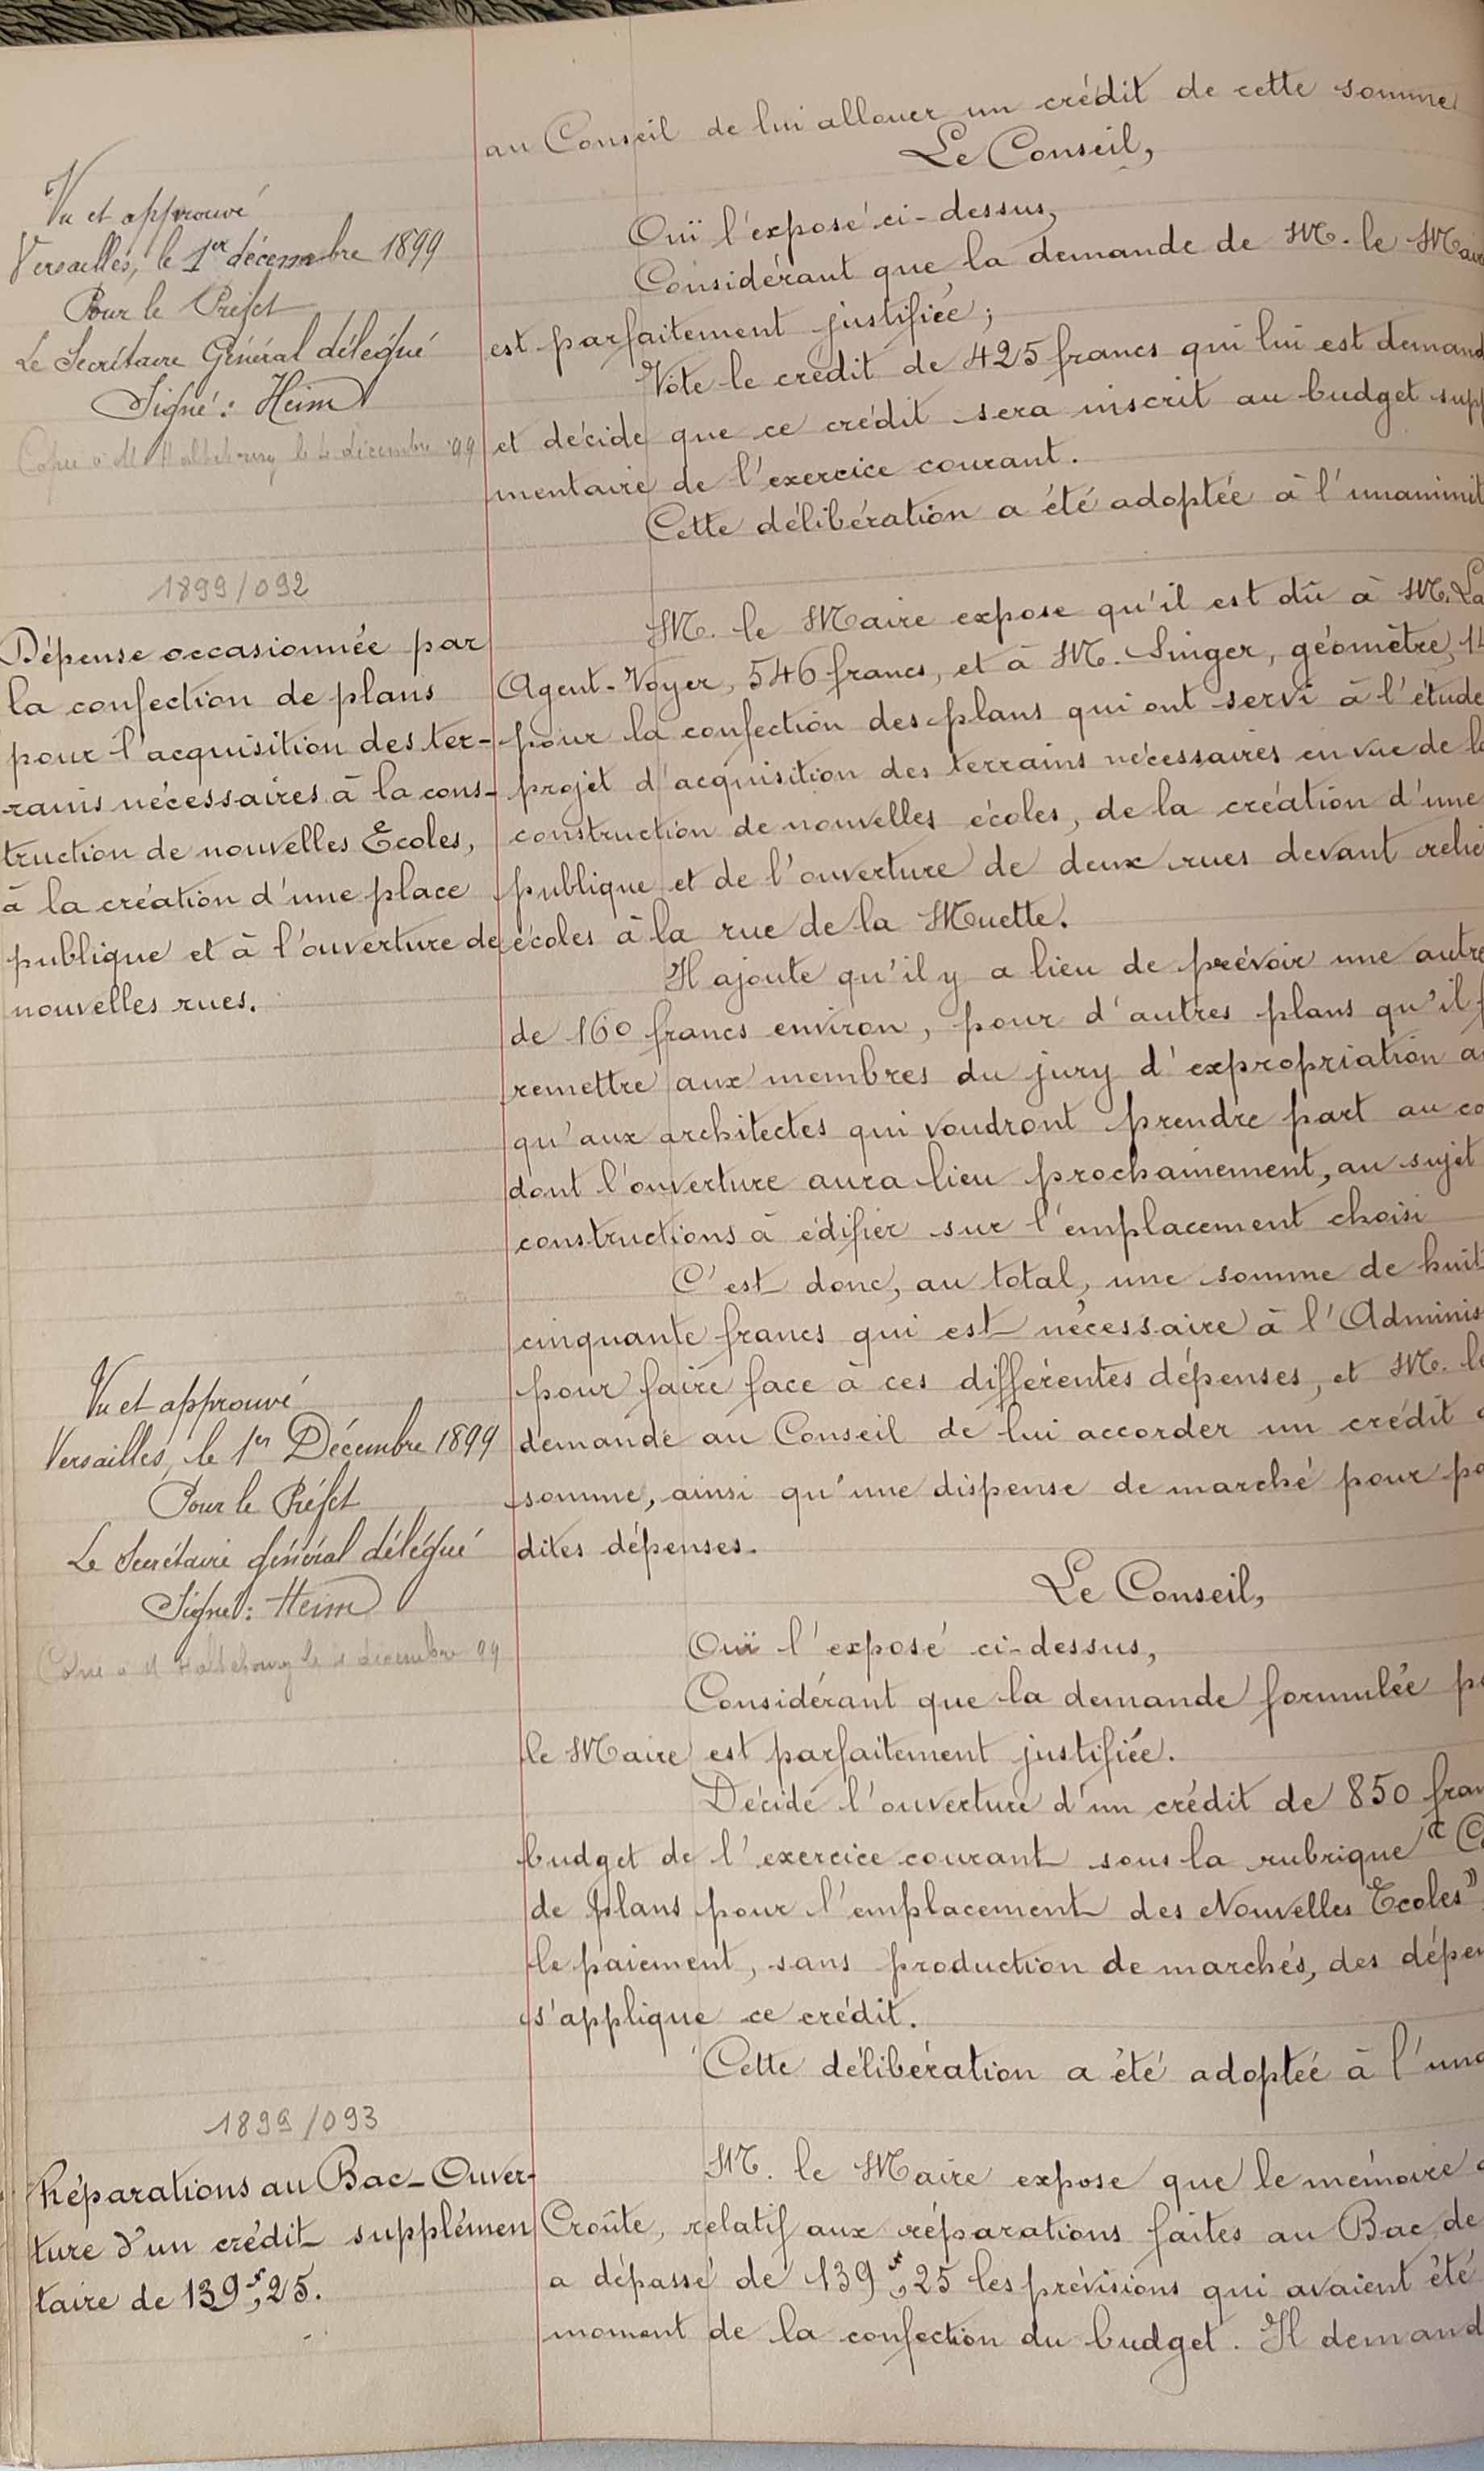 au Conseil de lui allouer un crédit de cette somme
Le Conseil,
Ouï l'exposé ci-dessus,
Considérant que la demande de M. le Mair
est parfaitement justifiée ;
Vote le crédit de 425 francs qui lui est demand
et décide que ce crédit sera inscrit au budget supp
mentaire de l'exercice courant.
Cette délibération a été adoptée à l'unanimit
Vu et approuvé
Versailles, le 1er décembre 1899
Pour le Préfet
Le Secrétaire Général délégué
Signé : Heim
Copie à M. le décembre 99
1899/092
Dépense occasionnée par
la confection de plans
pour l'acquisition des ter-
rains nécessaires à la cons-
truction de nouvelles Ecoles,
à la création d'une place
publique et à l'ouverture de
nouvelles rues.
M. le Maire expose qu'il est dû à M. La
Agent-Voyer, 546 francs, et à M. Singer, géomètre, 14
pour la confection des plans qui ont servi à l'étude
projet d'acquisition des terrains nécessaires en vue de la
construction de nouvelles écoles, de la création d'une
publique et de l'ouverture de deux rues devant relie
écoles à la rue de la Muette.
Il ajoute qu'il y a lieu de prévoir une autre
de 160 francs environ, pour d'autres plans qu'il f
remettre aux membres du jury d'expropriation a
qu'aux architectes qui voudront prendre part au co
dont l'ouverture aura lieu prochainement, au sujet
constructions à édifier sur l'emplacement choisi
C'est donc, au total, une somme de huit
cinquante francs qui est nécessaire à l'Adminis
pour faire face à ces différentes dépenses, et M. le
demande au Conseil de lui accorder un crédit d
somme, ainsi qu'une dispense de marché pour pa
dites dépenses.
Vu et approuvé
Versailles, le 1er Décembre 1899
Pour le Préfet
Le Secrétaire général délégué
Signé : Heim
Copie à M le décembre 99
Le Conseil,
Ouï l'exposé ci-dessus,
Considérant que la demande formulée pa
le Maire est parfaitement justifiée.
Décide l'ouverture d'un crédit de 850 fran
budget de l'exercice courant sous la rubrique "Co
de plans pour l'emplacement des Nouvelles Ecoles"
le paiement, sans production de marchés, des dépen
s'applique ce crédit.
Cette délibération a été adoptée à l'una
1899/093
Réparations au Bac - Ouver-
ture d'un crédit supplémen
taire de 139f,25.
M. le Maire expose que le mémoire d
Croûte, relatif aux réparations faites au Bac de
a dépassé de 139f,25 les prévisions qui avaient été
moment de la confection du budget. Il demand